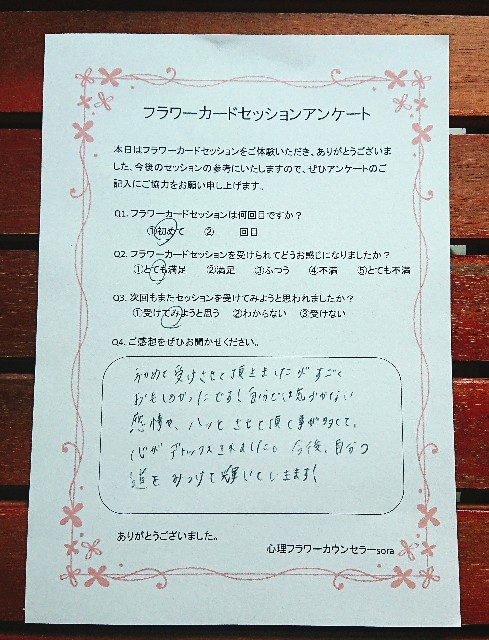 フラワーカードセッションアンケート
本日はフラワーカードセッションをご体験いただき、ありがとうございま
した。今後のセッションの参考にいたしますので、ぜひアンケートのご
記入にご協力をお願い申し上げます。
Q1. フラワーカードセッションは何回目ですか?
①初めて ② 回目
Q2. フラワーカードセッションを受けられてどうお感じになりましたか?
①とても満足 ②満足 ③ふつう ④不満 ⑤とても不満
Q3. 次回もまたセッションを受けてみようと思われましたか?
①受けてみようと思う ②わからない ③受けない
Q4. ご感想をぜひお聞かせください。
初めて受けさせて頂きましたがすごく
おもしろかったです!自分では気づかない
感情や、ハッとさせて頂く事が多くて、
心がデトックスされました。今後、自分の
道をみつけて輝いていきます!
ありがとうございました。
心理フラワーカウンセラーsora